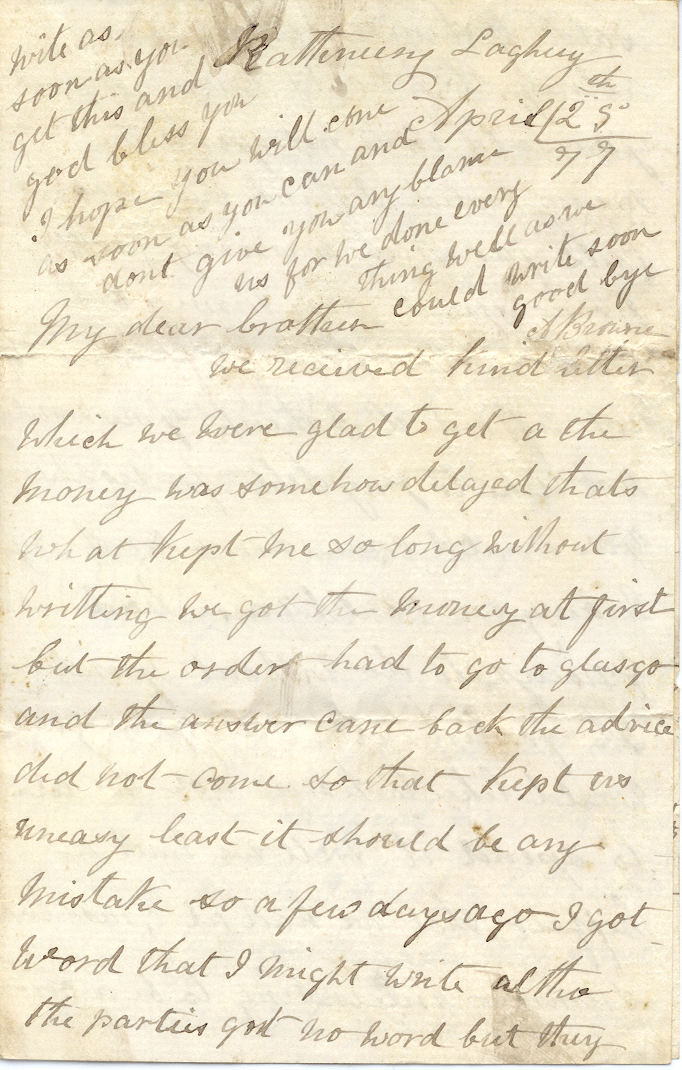 write as
soon as you
get this and
god bless you
I hope you will come
as soon as you can and
dont give you any blame
us for we done every
thing well as we
could write soon
good bye
A Browne
Laghey
April 25th
77
My dear brother
we recieved kind letter
which we were glad to get a the
money was somehow delayed thats
what kept me so long without
writting we got the money at first
but the order had to go to glasgo
and the answer cane back the advice
did not come so that kept us
uneasy least it should be any
mistake so a few days ago I got
word that I might write altho
the parties got no word but they